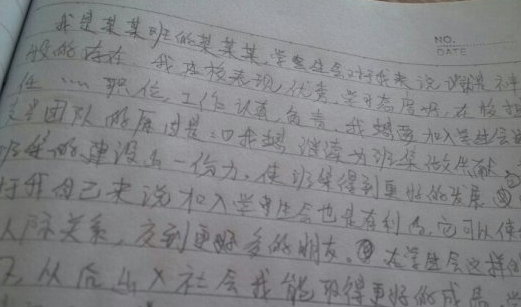 NO.
DATE
我是某某班的某某某,学生会对于我来说
般的存在 我在校表现优秀,学习态度好,在校担
任……职位,工作认真,负责。我想要加入学生会
团队的原因是:①我想 为班集做贡献
班集的建设出一份力,使班集得到更好的发展
于我自己来说加入学生会也是有利的,它可以使
人际关系,交到更多的朋友。③在学生会这样的
以后出入社会我能取得更好的成